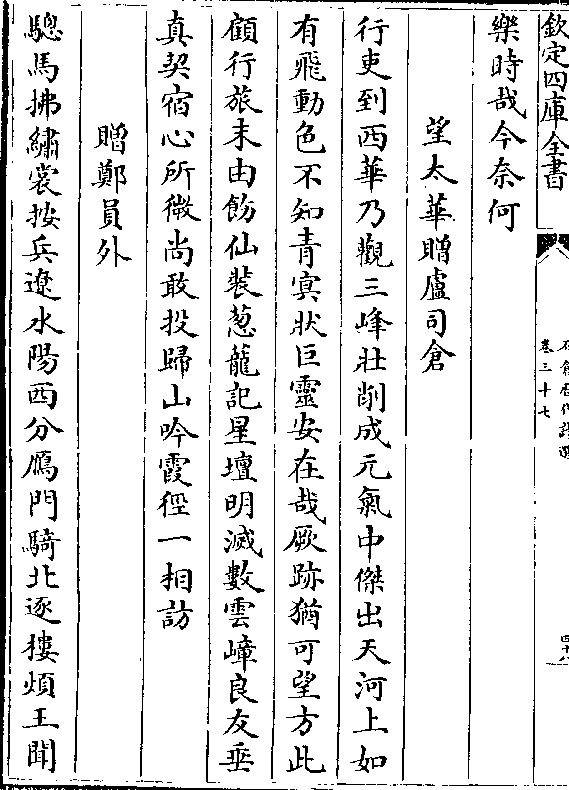 欽定四庫全書
卷三十七
樂時哉今奈何
望太華贈盧司倉
行吏到西華乃觀三峰壯削成元氣中傑出天河上如
有飛動色不知青冥狀巨靈安在哉厥跡猶可望方此
顧行旅末由飭仙裝葱蘢記星壇明滅數雲嶂良友垂
真契宿心所微尚敢投歸山吟霞徑一相訪
贈鄭員外
驄馬拂繡裳按兵遼水陽西分鴈門騎北逐摟煩王聞